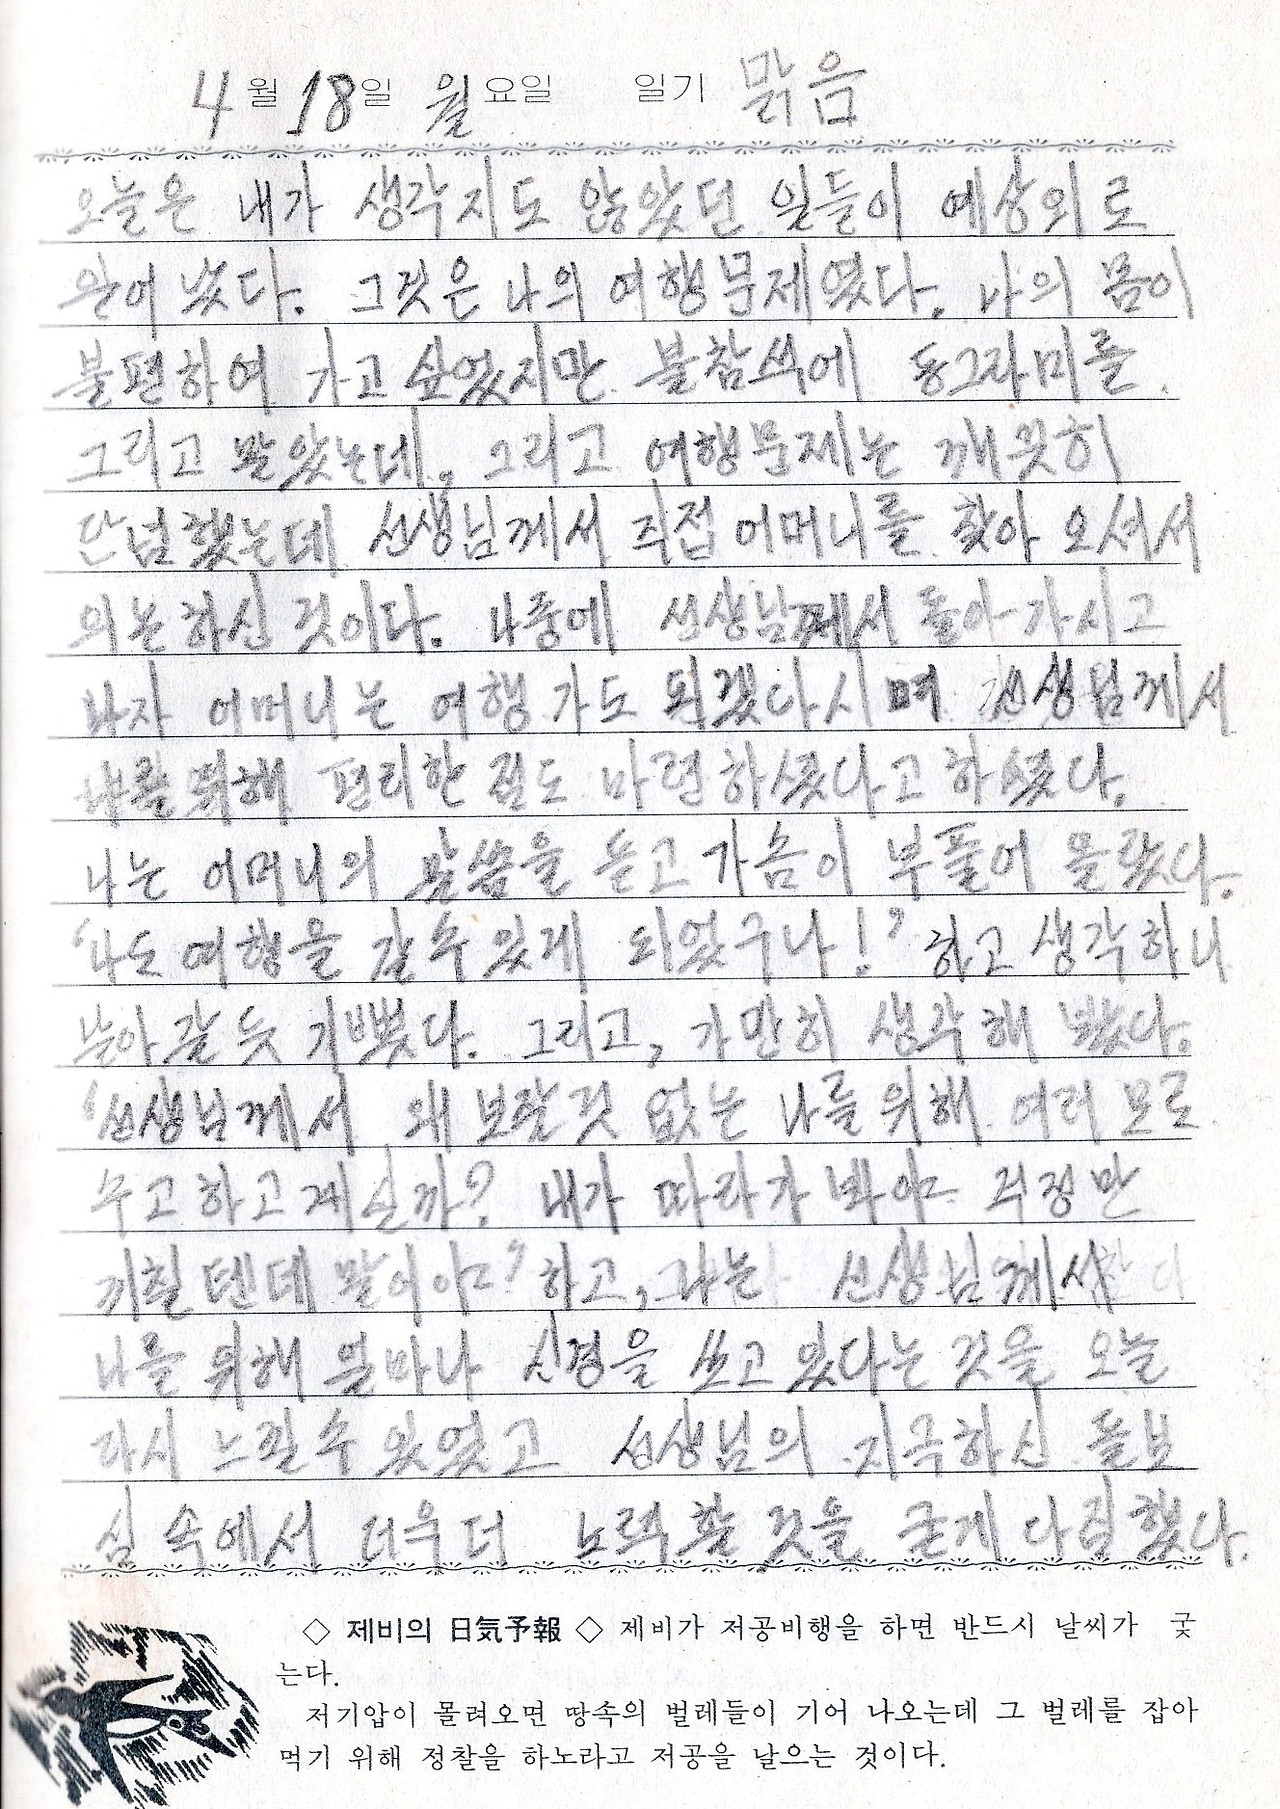 4월 18일 월요일 일기 맑음
오늘은 내가 생각지도 않았던 일들이 예상외로
일어 났다. 그것은 나의 여행문제였다. 나의 몸이
불편하여 가고 싶었지만 불참쪽에 동그라미를
그리고 말았는데. 그리고 여행문제는 깨끗히
단념했는데 선생님께서 직접 어머니를 찾아 오셔서
의논하신 것이다. 나중에 선생님께서 돌아가시고
나자 어머니는 여행가도 되겠다시며 선생님께서
나를 위해 편리한 점도 마련하셨다고 하셨다.
나는 어머니의 말씀을 듣고 가슴이 부풀어 올랐다.
'나도 여행을 갈수있게 되었구나!' 하고 생각하니
날아갈 듯 기뻤다. 그리고, 가만히 생각해 봤다.
'선생님께서 왜 보잘것 없는 나를 위해 여러 모로
수고하고 계실까? 내가 따라가 봐야 걱정만
끼칠텐데 말이야' 하고, 나는 선생님께서
나를 위해 얼마나 신경을 쓰고 있다는 것을 오늘
다시 느낄수 있었고 선생님의 지극하신 돌보
심 속에서 더욱더 노력할 것을 굳게 다짐했다.
◇ 제비의 日気予報 ◇ 제비가 저공비행을 하면 반드시 날씨가 궂
는다.
저기압이 몰려오면 땅속의 벌레들이 기어 나오는데 그 벌레를 잡아
먹기 위해 정찰을 하노라고 저공을 날으는 것이다.